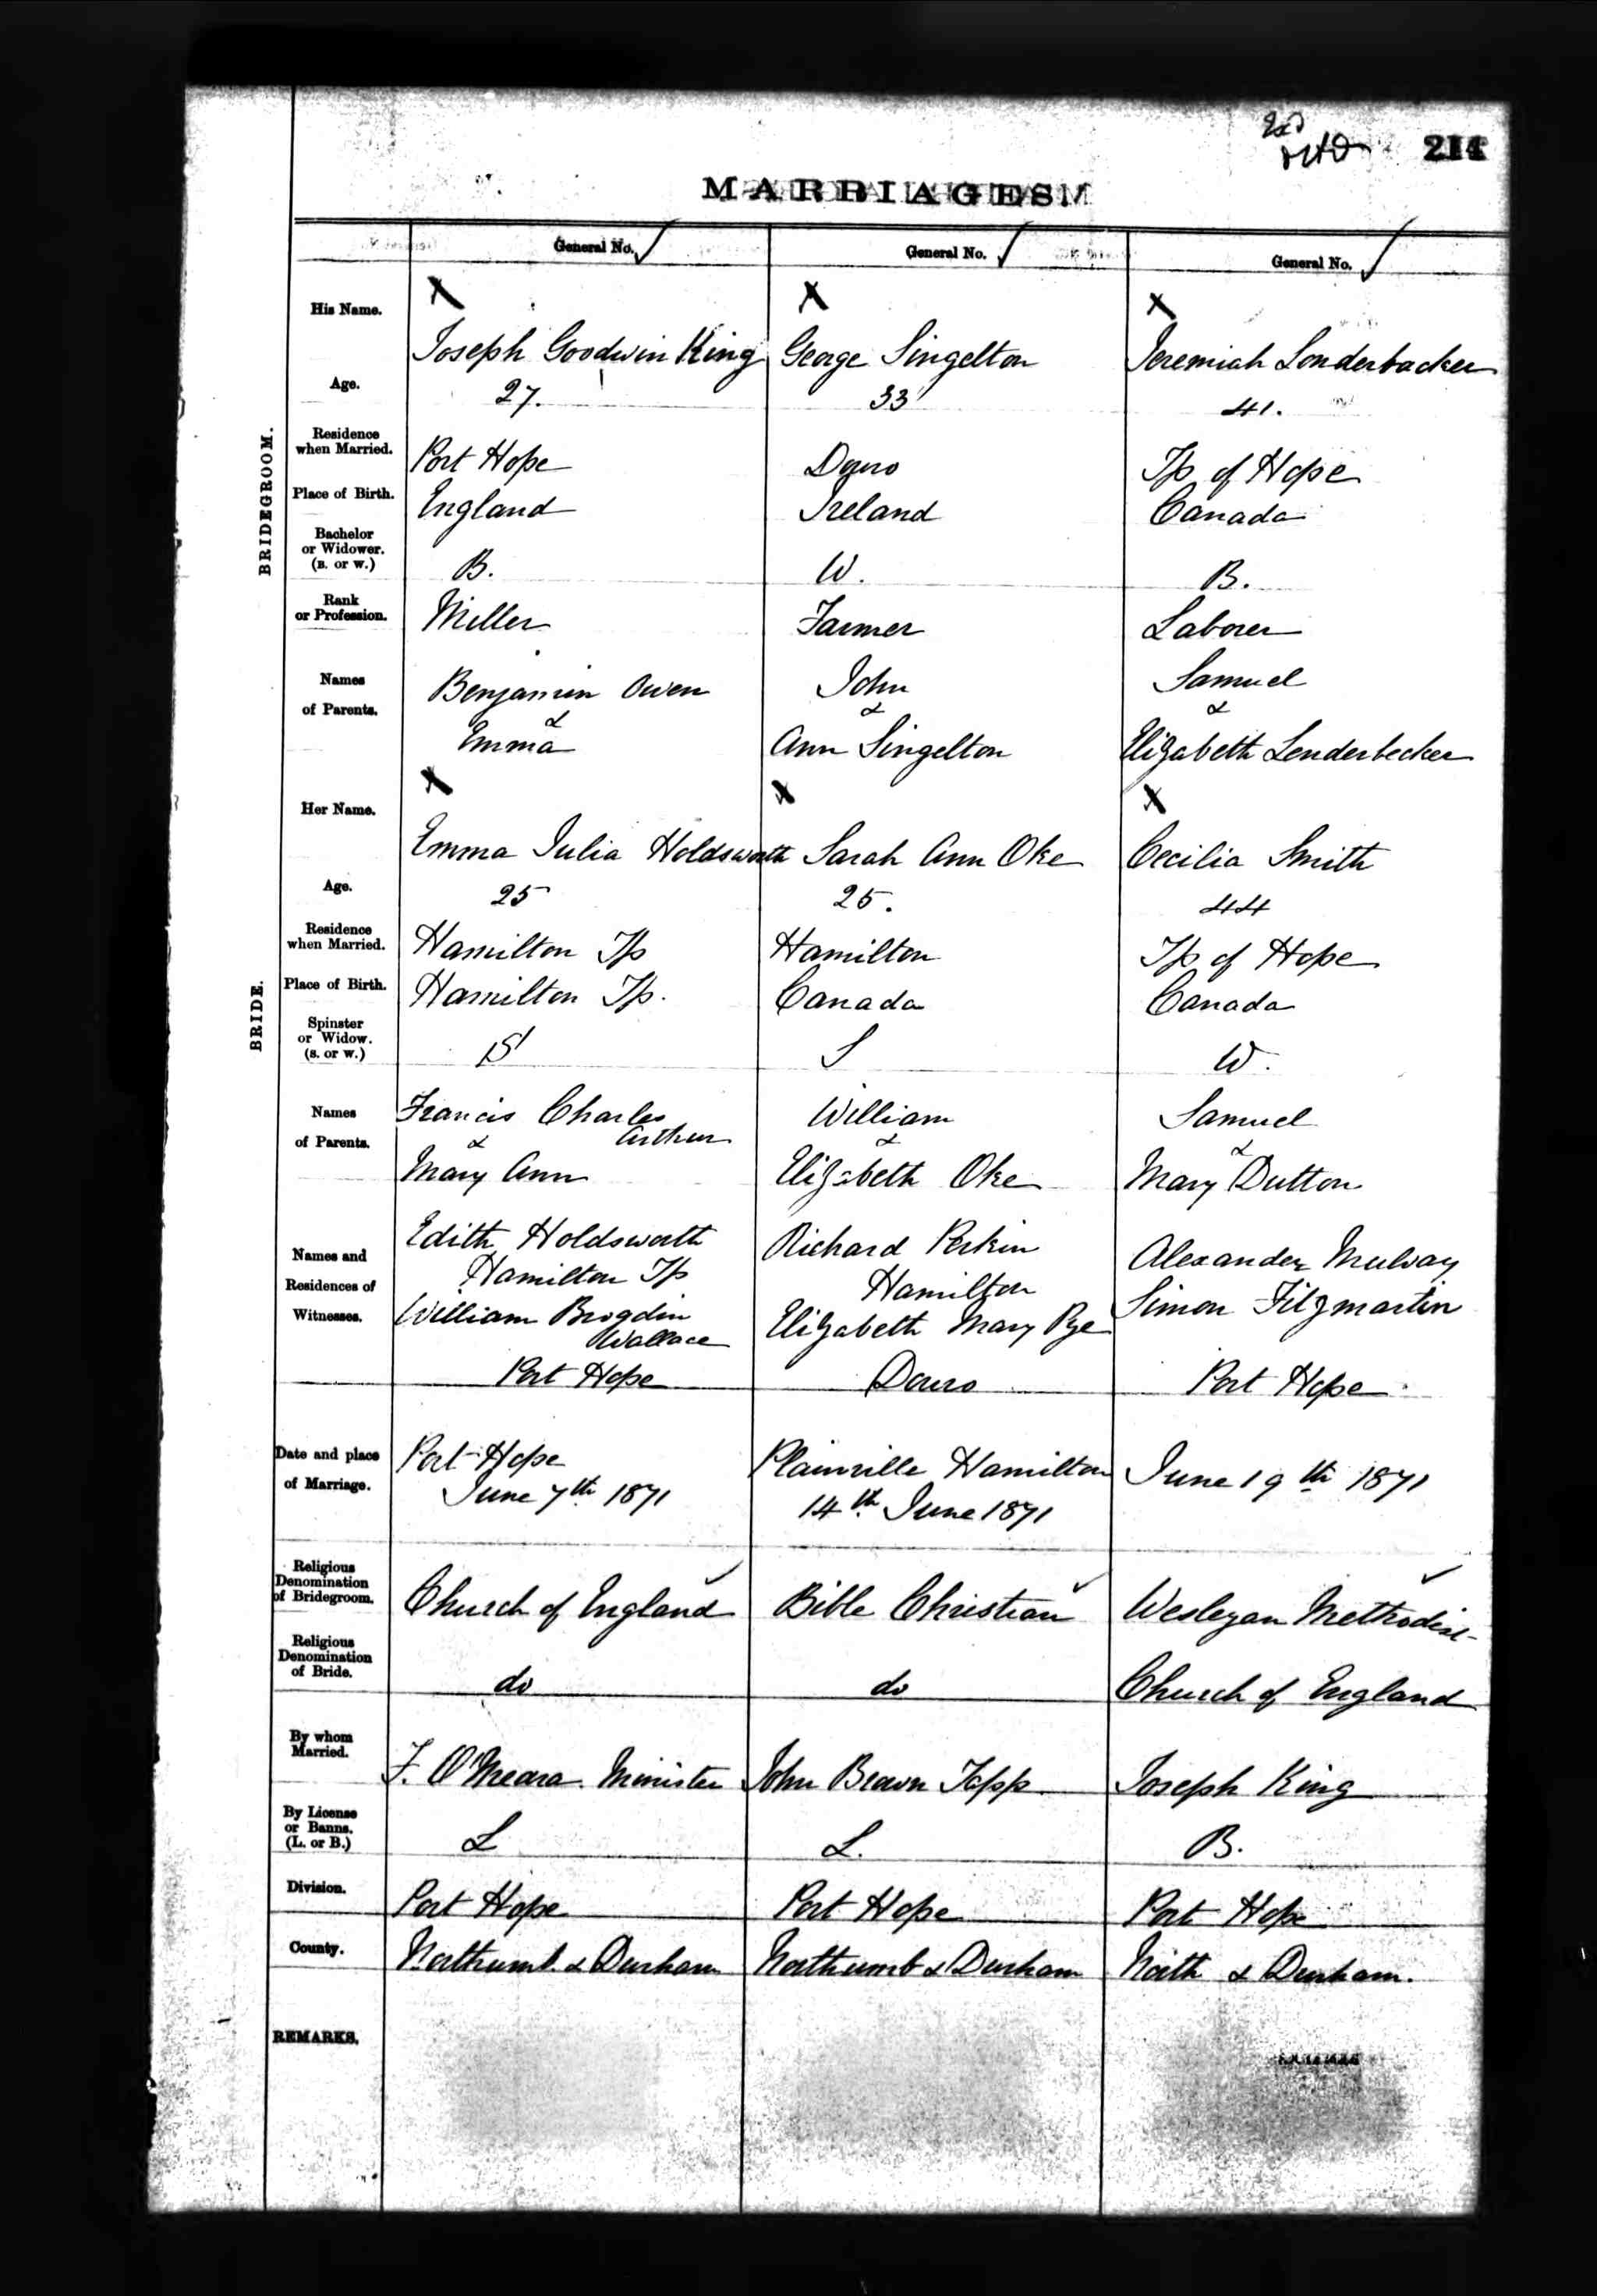 214
MARRIAGES
General No. General No. General No.
BRIDEGROOM.
His Name.
Joseph Goodwin King George Singelton Jeremiah Londerbacker
Age.
27. 33 41.
Residence
when Married.
Port Hope Douro Tp of Hope
Place of Birth.
England Ireland Canada
Bachelor
or Widower.
(B. or W.)
B. W. B.
Rank
or Profession.
Miller Farmer Laborer
Names
of Parents.
Benjamin Owen John Samuel
& & &
Emma Ann Singelton Elizabeth Lenderbecker
BRIDE.
Her Name.
Emma Julia Holdsworth Sarah Ann Oke Cecilia Smith
Age.
25 25. 44
Residence
when Married.
Hamilton Tp Hamilton Tp of Hope
Place of Birth.
Hamilton Tp. Canada Canada
Spinster
or Widow.
(S. or W.)
S S W.
Names
of Parents.
Francis Charles William Samuel
& Arthur & &
Mary Ann Elizabeth Oke Mary Dutton
Names and
Residences of
Witnesses.
Edith Holdsworth Richard Perkin Alexander Mulvay
Hamilton Tp Hamilton Simon Fitzmartin
William Brogdin Elizabeth Mary Pye
Wallace
Port Hope Douro Port Hope
Date and place
of Marriage.
Port Hope Plainville Hamilton June 19th 1871
June 7th 1871 14th June 1871
Religious
Denomination
of Bridegroom.
Church of England Bible Christian Wesleyan Methodist
Religious
Denomination
of Bride.
do do Church of England
By whom
Married.
F. O'Meara Minister John Brown Tapp Joseph King
By License
or Banns.
(L. or B.)
L L. B.
Division.
Port Hope Port Hope Port Hope
County.
Northumb. & Durham Northumb & Durham North & Durham.
REMARKS.